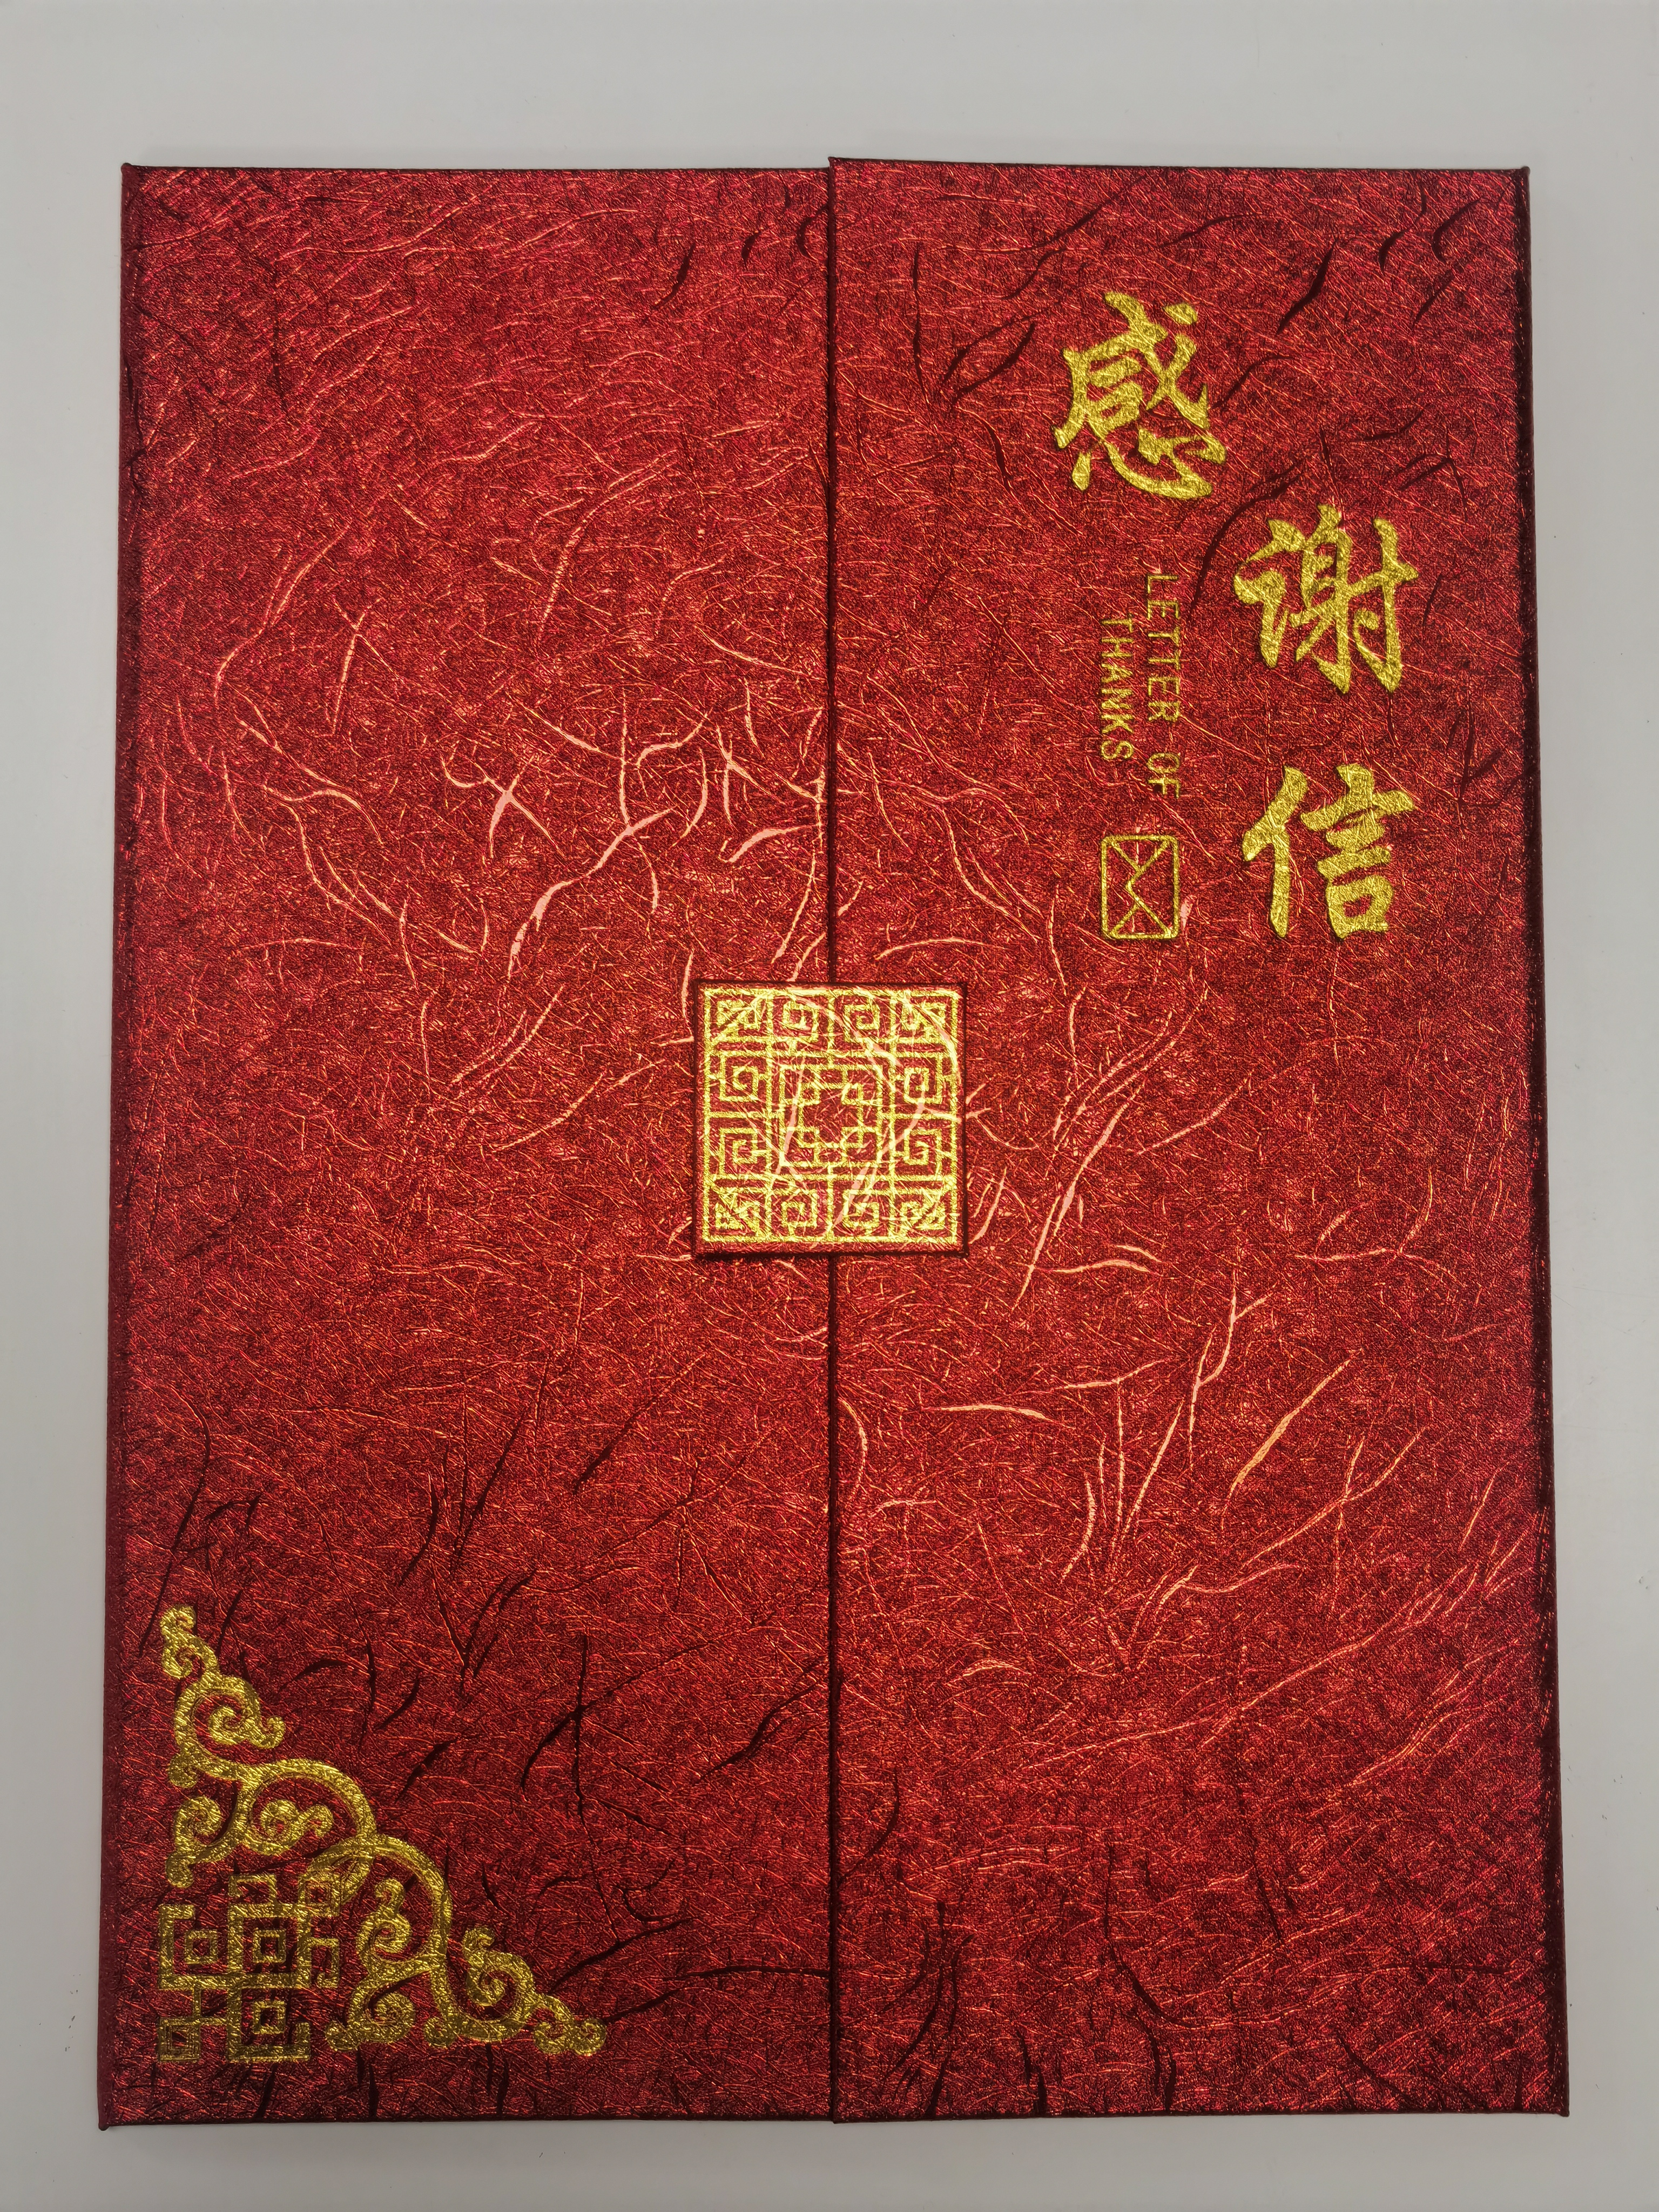 感谢信
LETTER OF
THANKS